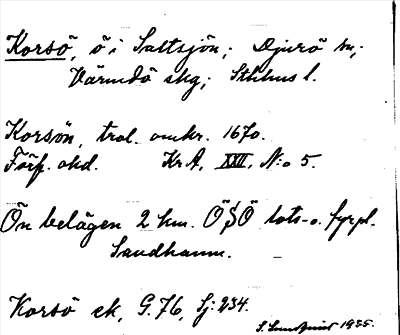 Korsö, ö i Saltsjön; Djurö sn;
Värmdö skg; Sthlms l.
Korsön, trol. omkr. 1670.
Förf. okd. KrA, XXII, N:o 5.
Ön belägen 2 km. ÖSÖ lots- o. fyrpl.
Sandhamn.
Korsö ek, G.76, Sj: 234.
1935.